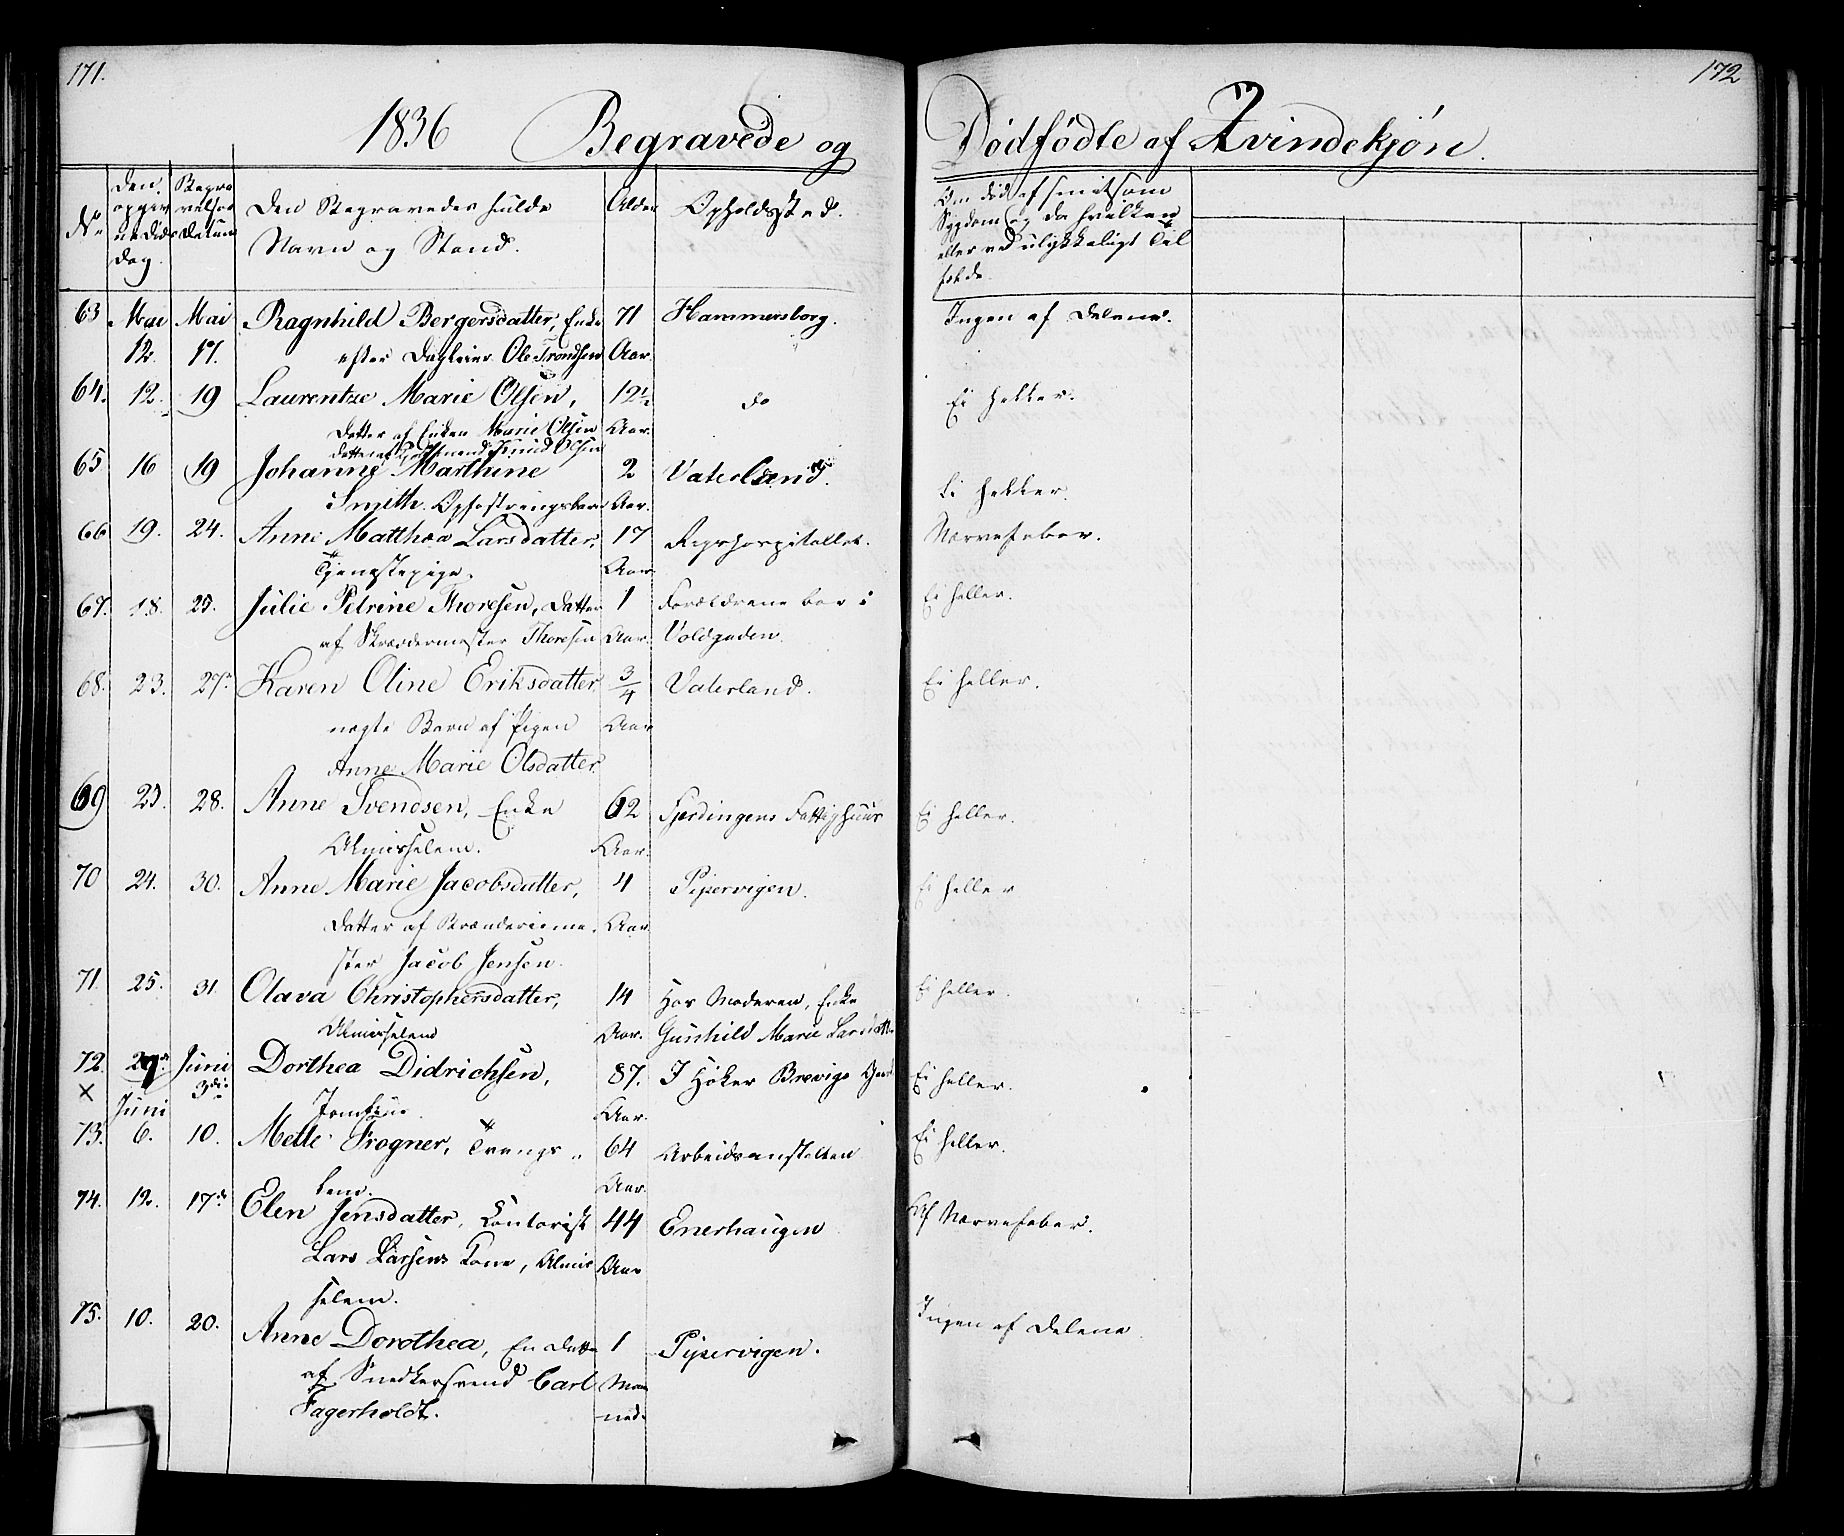 171.
172
1836 Begravede og Dødfødte af Qvindekjøn.
No
Den opgivne Døds Dag
Begravelses Datum
Den Begravedes fulde Navn og Stand.
Alder
Opholdssted.
Om død af smitsom Sygdom og da hvilken eller ved ulykkeligt Tilfælde.
63 Mai Mai Ragnhild Bergersdatter, Enke 71 Hammersborg. Ingen af Delene.
12. 17. efter Dagleier Ole Trondsen Aar.
64. 12. 19 Laurentze Marie Olsen, 12½ do Ei heller.
Datter af Enken Marie Olsen Aar.
65 16 19 Johanne Marthine 2 Vaterland. Ei heller.
Smith. Opfostringsbarn Aar.
66 19. 24. Anne Matthea Larsdatter, 17 Rigshospitallet. Nervefeber.
Tjenestepige. Aar.
67. 18. 25. Julie Petrine Thoresen, Datter 1 Forældrene boe i Ei heller.
af Skrædermester Thoresen Aar. Voldgaden.
68. 23. 27. Karen Oline Eriksdatter, 3/4 Vaterland. Ei heller.
uægte Barn af Pigen Aar
Anne Marie Olsdatter.
69 23. 28. Anne Svendsen, Enke 62 Fjerdingens Fattighuus Ei heller.
Almisselem. Aar.
70 24. 30. Anne Marie Jacobsdatter, 4 Pipervigen. Ei heller
Datter af Brænderieme- Aar.
ster Jacob Jensen.
71. 25. 31. Olava Christophersdatter, 14 Hos Moderen, Enke Ei heller.
Almisselem Aar. Gunhild Marie Larsdatt.
72. Juni Dorthea Didrichsen, 87. I Høker Brevigs Gaard Ei heller.
× 3die Jomfrue. Aar.
Juni
73. 6. 10. Mette Frogner, Tvangs- 64 Arbeidsanstalten Ei heller.
lem. Aar.
74. 12. 17de Elen Jensdatter, Contorist 44 Enerhaugen Af Nervefeber.
Lars Larsens Kone, Almis- Aar
selem.
75. 10. 20. Anne Dorothea, En Datter 1 Pipervigen. Ingen af Delene.
af Snedkersvend Carl Maa-
Fagerholdt. ned.